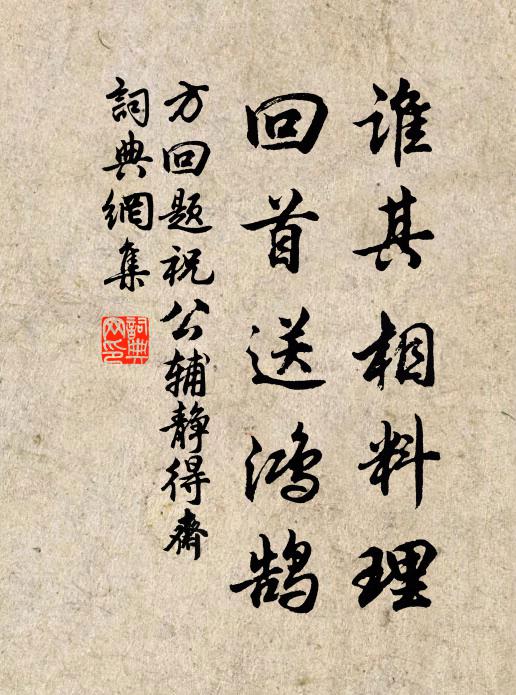 谁其相料理
回首送鸿鹄
方回题祝公辅静得斋
詞典網集
詞典网印